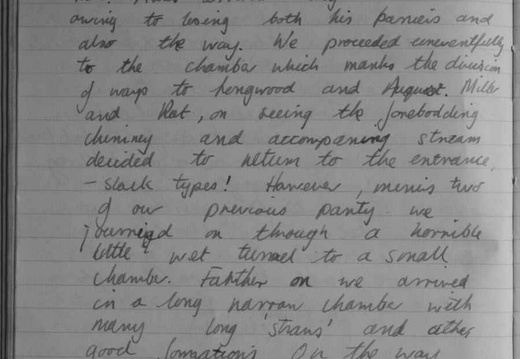 owing to losing both his panniers and
also the way. We proceeded uneventfully
to the chamber which marks the division
of ways to Longwood and August. Mills
and Rat, on seeing the forebodding
chimney and accompaning stream
decided to return to the entrance,
- slack types! However, minus two
of our previous party we
journied on through a horrible
little wet tunnel to a small
chamber. Farther on we arrived
in a long narrow chamber with
many long 'straws' and other
good formations. On the way